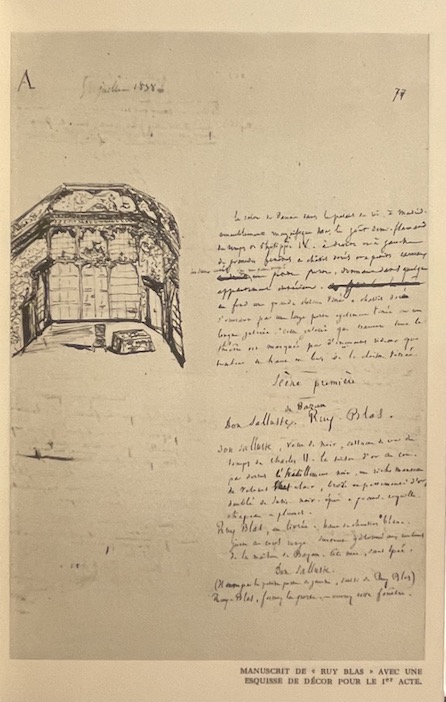 A
juillet 1838
77
Le salon de Danaé dans le palais du roi, à Madrid.
ameublement magnifique dans le goût demi-flamand
du temps de Philippe IV. à droite
de grandes fenêtres à châssis dorés
porte basse donnant dans quelque
appartement intérieur.
au fond une grande cloison vitrée à châssis dorés
s'ouvrant par une large porte également vitrée sur une
longue galerie. cette galerie qui traverse tout le
théâtre est masquée par d'immenses rideaux qui
tombent du haut en bas de la cloison vitrée.
Scène première
de Bazan
Don Salluste, Ruy-Blas.
Don Salluste, vêtu de noir, costume de cour du
temps de Charles II. la toison d'or au cou.
par dessus l'habillement noir, un riche manteau
de velours clair, brodé d'or
doublé de satin noir. épée à grande coquille
chapeau à plumes.
Ruy Blas, en livrée. haut de chausses
de la maison de Bazan. tête nue, sans épée.
Don Salluste.
Ruy-Blas, fermez la porte. — ouvrez cette fenêtre.
MANUSCRIT DE « RUY BLAS » AVEC UNE
ESQUISSE DE DÉCOR POUR LE 1ER ACTE.